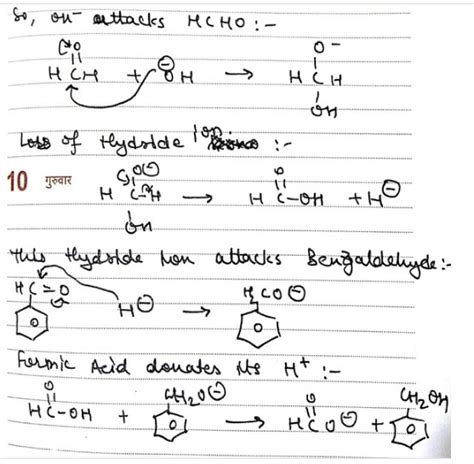 So, OH⁻ attacks HCHO :-
O O⁻
H C H + ⊖OH → H C H
OH
Loss of Hydride Ion :-
10 गुरुवार
O⊖ O
H C-H → H C-OH + H⊖
OH
This Hydride Ion attacks Benzaldehyde:-
H C=O H⊖ → H₂CO⊖
Formic Acid donates its H⁺ :-
O CH₂O⊖ O CH₂OH
HC-OH + → HCO⊖ +